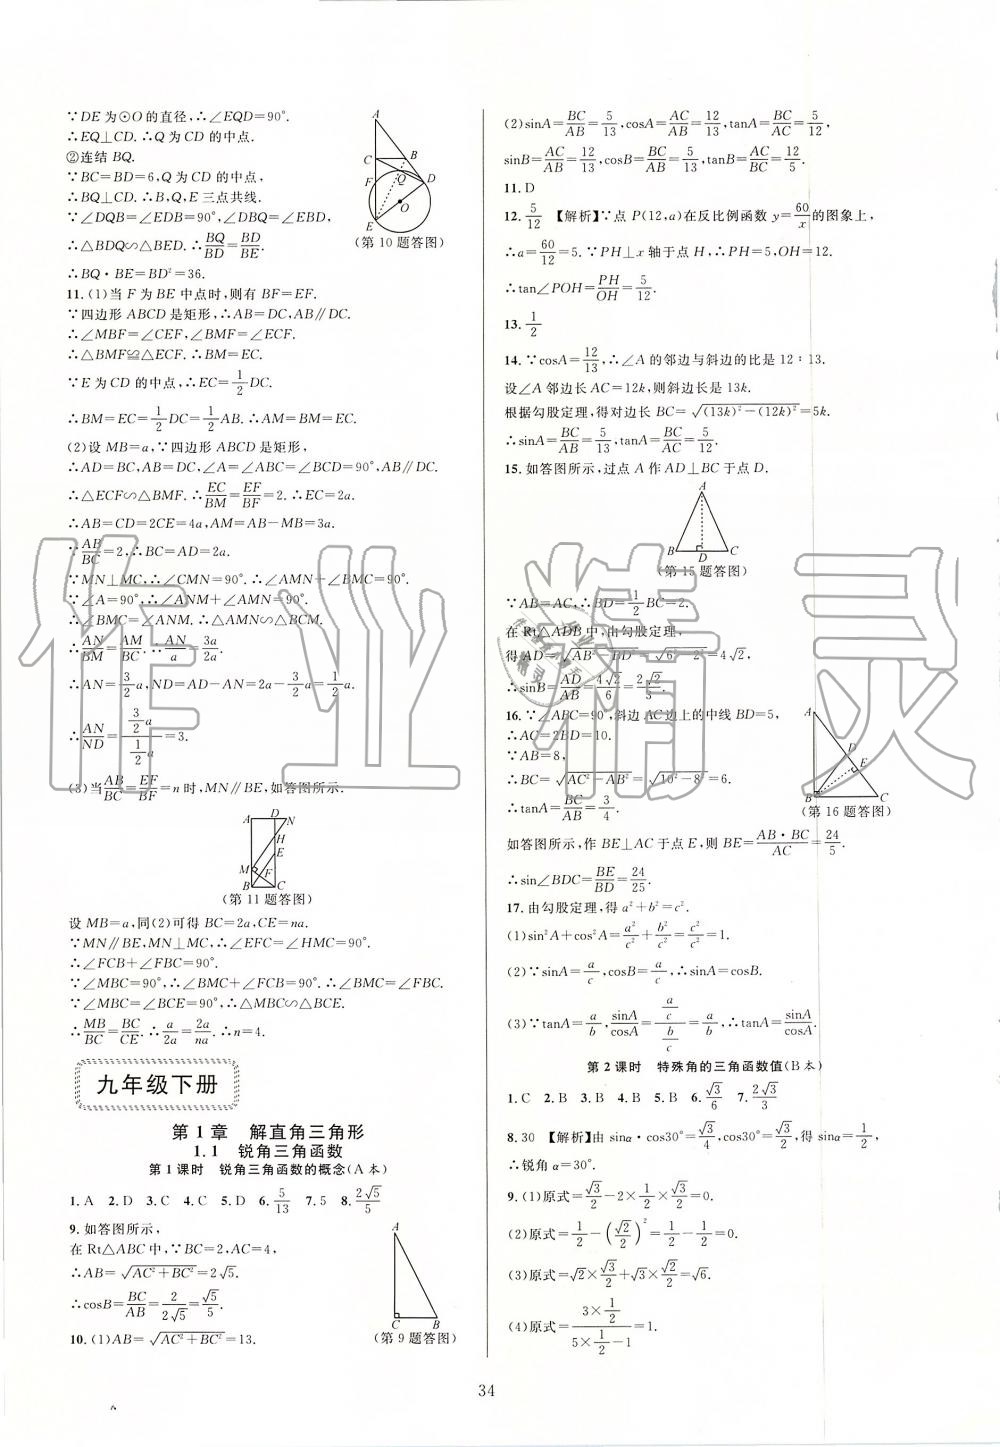 ∵DE为⊙O的直径,∴∠EQD=90°.
∴EQ⊥CD.∴Q为CD的中点.
②连结BQ.
∵BC=BD=6,Q为CD的中点,
∴BQ⊥CD.∴B,Q,E三点共线.
∵∠DQB=∠EDB=90°,∠DBQ=∠EBD,
∴△BDQ∽△BED.∴BQ/BD=BD/BE.
∴BQ·BE=BD²=36.
A
C
B
F
Q
D
O
E
(第10题答图)
11.(1)当F为BE中点时,则有BF=EF.
∵四边形ABCD是矩形,∴AB=DC,AB∥DC.
∴∠MBF=∠CEF,∠BMF=∠ECF.
∴△BMF≌△ECF.∴BM=EC.
∵E为CD的中点,∴EC=1/2DC.
∴BM=EC=1/2DC=1/2AB.∴AM=BM=EC.
(2)设MB=a,∵四边形ABCD是矩形,
∴AD=BC,AB=DC,∠A=∠ABC=∠BCD=90°,AB∥CD.
∴△ECF∽△BMF.∴EC/BM=EF/BF=2.∴EC=2a.
∴AB=CD=2CE=4a,AM=AB-MB=3a.
∵AB/BC=2,∴BC=AD=2a.
∵MN⊥MC,∴∠CMN=90°.∴∠AMN+∠BMC=90°.
∵∠A=90°,∴∠ANM+∠AMN=90°.
∴∠BMC=∠ANM.∴△AMN∽△BCM.
∴AN/BM=AM/BC.∴AN/a=3a/2a.
∴AN=3/2a,ND=AD-AN=2a-3/2a=1/2a.
∴AN/ND=(3/2a)/(1/2a)=3.
(3)当AB/BC=EF/BF=n时,MN∥BE,如答图所示.
A D N
H
E
M
F
B C
(第11题答图)
设MB=a,同(2)可得BC=2a,CE=na.
∵MN∥BE,MN⊥MC,∴∠EFC=∠HMC=90°.
∴∠FCB+∠FBC=90°.
∵∠MBC=90°,∴∠BMC+∠FCB=90°.∴∠BMC=∠FBC.
∵∠MBC=∠BCE=90°,∴△MBC∽△BCE.
∴MB/BC=BC/CE.∴a/2a=2a/na.∴n=4.
九年级下册
第1章 解直角三角形
1.1 锐角三角函数
第1课时 锐角三角函数的概念(A本)
1.A 2.D 3.C 4.C 5.D 6.5/13 7.5 8.2√5/5
9.如答图所示,
在Rt△ABC中,∵BC=2,AC=4,
∴AB=√(AC²+BC²)=2√5.
∴cosB=BC/AB=2/(2√5)=√5/5.
A
C B
(第9题答图)
10.(1)AB=√(AC²+BC²)=13.
(2)sinA=BC/AB=5/13,cosA=AC/AB=12/13,tanA=BC/AC=5/12,
sinB=AC/AB=12/13,cosB=BC/AB=5/13,tanB=AC/BC=12/5.
11.D
12.5/12 【解析】∵点P(12,a)在反比例函数y=60/x的图象上,
∴a=60/12=5.∵PH⊥x轴于点H,∴PH=5,OH=12.
∴tan∠POH=PH/OH=5/12.
13.1/2
14.∵cosA=12/13,∴∠A的邻边与斜边的比是12∶13.
设∠A邻边长AC=12k,则斜边长是13k.
根据勾股定理,得对边长BC=√((13k)²-(12k)²)=5k.
∴sinA=BC/AB=5/13,tanA=BC/AC=5/12.
15.如答图所示,过点A作AD⊥BC于点D.
A
B D C
(第15题答图)
∵AB=AC,∴BD=1/2BC=2.
在Rt△ADB中,由勾股定理,
得AD=√(AB²-BD²)=√(6²-2²)=4√2,
∴sinB=AD/AB=4√2/6=2√2/3.
16.∵∠ABC=90°,斜边AC边上的中线BD=5,
∴AC=2BD=10.
∵AB=8,
∴BC=√(AC²-AB²)=√(10²-8²)=6.
∴tanA=BC/AB=3/4.
A
D
E
B C
(第16题答图)
如答图所示,作BE⊥AC于点E,则BE=AB·BC/AC=24/5.
∴sin∠BDC=BE/BD=24/25.
17.由勾股定理,得a²+b²=c².
(1)sin²A+cos²A=a²/c²+b²/c²=c²/c²=1.
(2)∵sinA=a/c,cosB=a/c,∴sinA=cosB.
(3)∵tanA=a/b,sinA/cosA=(a/c)/(b/c)=a/b,∴tanA=sinA/cosA.
第2课时 特殊角的三角函数值(B本)
1.C 2.B 3.B 4.C 5.B 6.√3/6 7.2√3/3
8.30 【解析】由sinα·cos30°=√3/4,cos30°=√3/2,得sinα=1/2,
∴锐角α=30°.
9.(1)原式=√3/2-2×1/2×√3/2=0.
(2)原式=1/2-(√2/2)²=1/2-1/2=0.
(3)原式=√2×√3/2+√3×√2/2=√6.
(4)原式=(3×1/2)/(5×1/2-1)=1.
34
作业精灵